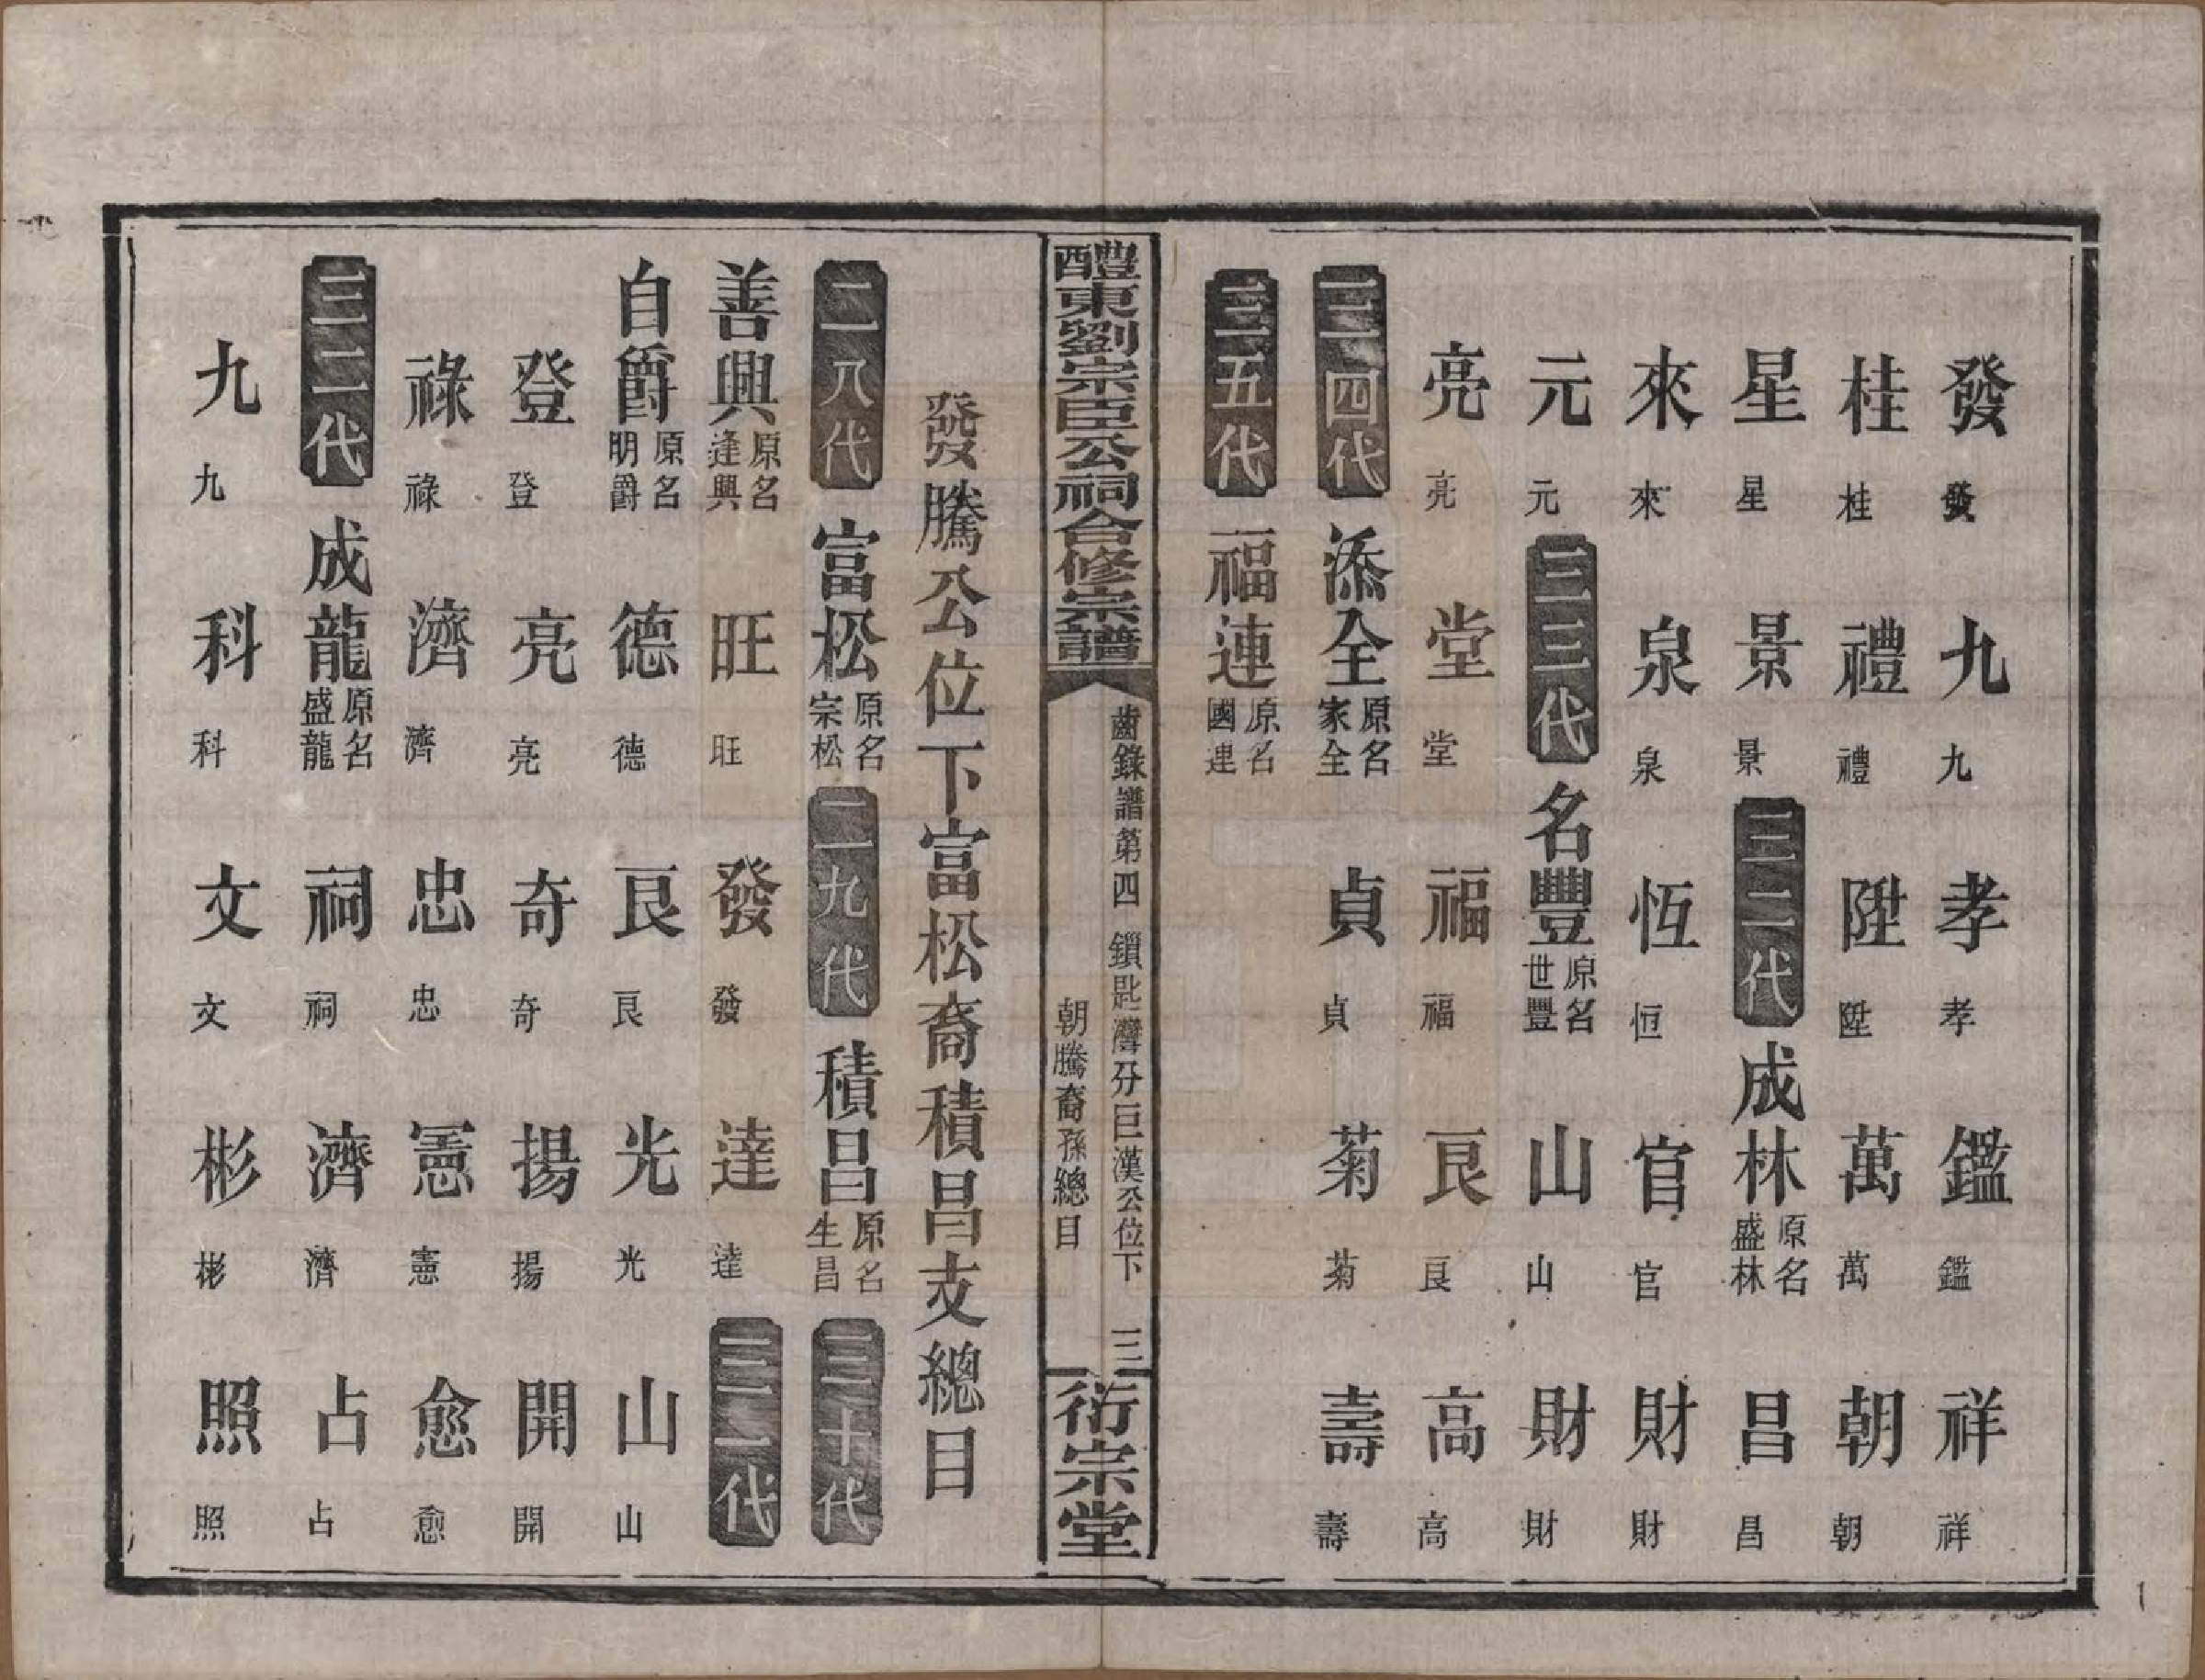 發 發 九 九 孝 孝 鑑 鑑 祥 祥
桂 桂 禮 禮 陞 陞 萬 萬 朝 朝
星 星 景 景 三二代 成林 原名盛林 昌 昌
來 來 泉 泉 恆 恒 官 官 財 財
元 元 三三代 名豐 原名世豐 山 山 財 財
亮 亮 堂 堂 福 福 良 良 高 高
三四代 添全 原名家全 貞 貞 菊 菊 壽 壽
三五代 福連 原名國連
醴東劉宗臣公祠合修宗譜
齒錄譜第四 鎻匙灣分巨漢公位下 三
朝騰裔孫總目
衍宗堂
發騰公位下富松裔積昌支總目
二八代 富松 原名宗松 二九代 積昌 原名生昌 三十代
善興 原名逢興 旺 旺 發 發 達 達 三一代
自爵 原名明爵 德 德 良 良 光 光 山 山
登 登 亮 亮 奇 奇 揚 揚 開 開
祿 祿 濟 濟 忠 忠 憲 憲 愈 愈
三二代 成龍 原名盛龍 祠 祠 濟 濟 占 占
九 九 科 科 文 文 彬 彬 照 照